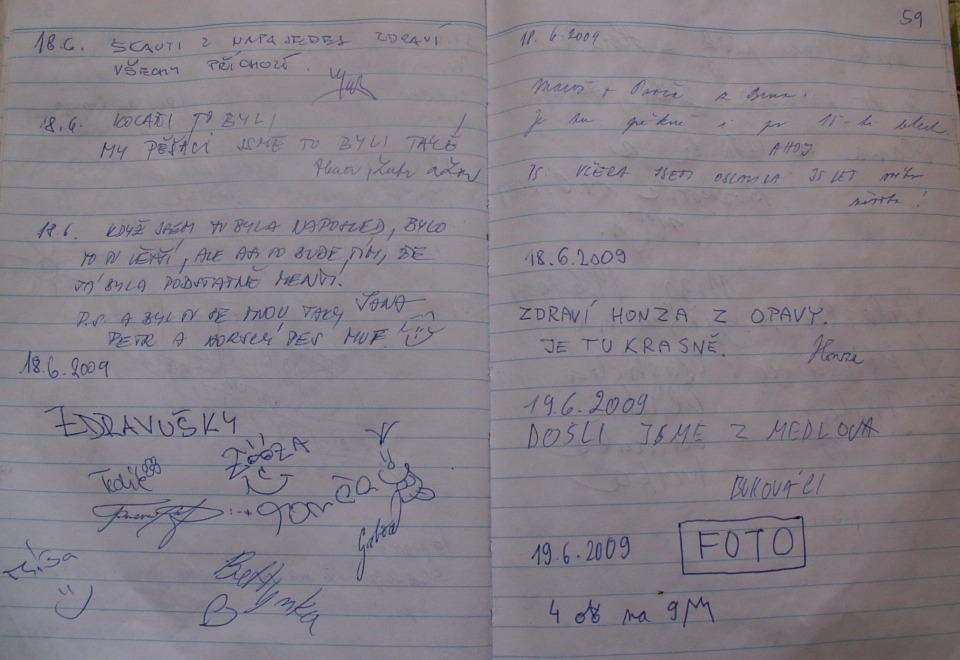 18.6. SKAUTI Z NAPAJEDEL ZDRAVÍ
VŠECHNY PŘÍCHOZÍ.
18.6. KOLAŘI TO BYLI
MY PĚŠÁCI JSME TU BYLI TAKÉ!
18.6. KDYŽ JSEM TU BYLA NAPOSLED, BYLO
TO TU VĚTŠÍ, ALE ASI TO BUDE TÍM, ŽE
JÁ BYLA PODSTATNĚ MENŠÍ.
P.S. A BYLI TU SE MNOU TAKY JANA
PETR A HORSKÝ PES
18.6.2009
ZDRAVUŠKY
ZUZA
Gabča
Míša
Bettynka
B
59
18.6.2009
+ z Brna.
Je tu pěkně i po 15-ti letech.
AHOJ
PS: VČERA JSEM OSLAVILA 35 LET
18.6.2009
ZDRAVÍ HONZA Z OPAVY.
JE TU KRASNĚ.
Honza
19.6.2009
DOŠLI JSME Z MEDLOVA
BUKOVÁCI
19.6.2009 FOTO
4 na 9M